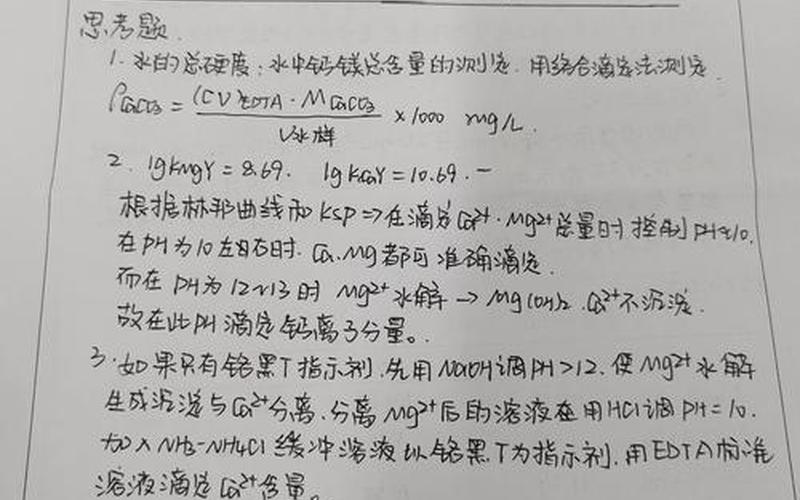 思考题.
1. 水的总硬度: 水中钙镁总含量的测定. 用络合滴定法测定.
ρCaCO3 = (CV)EDTA · MCaCO3 / V水样 × 1000 mg/L.
2. lgKMgY = 8.69. lgKCaY = 10.69. -
根据林邦曲线和 KSP => 在滴定 Ca2+. Mg2+总量时 控制 PH≈10.
在PH为10左右时. Ca. Mg都可准确滴定.
而在 PH为12~13时 Mg2+ 水解 → Mg(OH)2. Ca2+不沉淀.
故在此PH滴定钙离子分量。.
3. 如果只有铬黑T指示剂. 先用NaOH调PH>12. 使Mg2+水解
生成沉淀与Ca2+分离. 分离Mg2+后的溶液在用HCl调PH=10.
加入NH3-NH4Cl缓冲溶液以铬黑T为指示剂. 用EDTA标准
溶液滴定Ca2+含量。